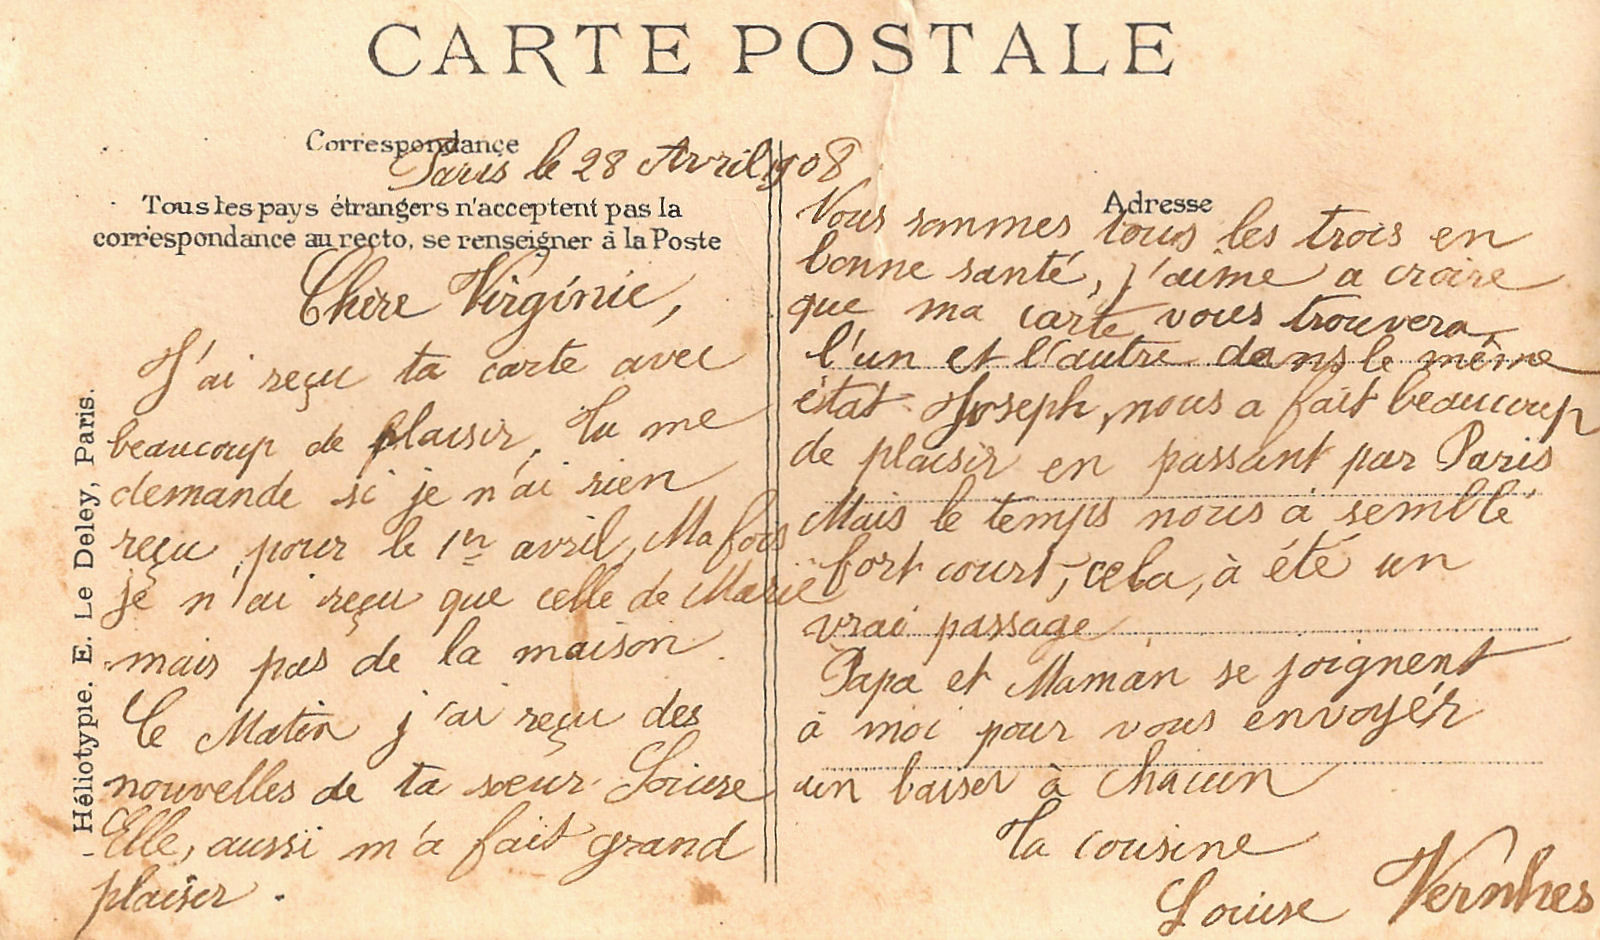 CARTE POSTALE
Correspondance
Paris le 28 Avril 1908
Tous les pays étrangers n'acceptent pas la
correspondance au recto, se renseigner à la Poste
Chère Virginie,
J'ai reçu ta carte avec
beaucoup de plaisir, Tu me
demande si je n'ai rien
reçu, pour le 1er avril, Ma fois
je n'ai reçu que celle de Marie
mais pas de la maison.
Ce Matin j'ai reçu des
nouvelles de ta sœur Louise
Elle, aussi m'a fait grand
plaisir.
Héliotypie. E. Le Deley, Paris.
Adresse
Nous sommes tous les trois en
bonne santé, j'aime a croire
que ma carte vous trouvera
l'un et l'autre dans le même
état Joseph, nous a fait beaucoup
de plaisir en passant par Paris
Mais le temps nous à semblé
fort court, cela, à été un
vrai passage
Papa et Maman se joignent
à moi pour vous envoyér
un baiser à chacun
Ta cousine
Louise Vernhes